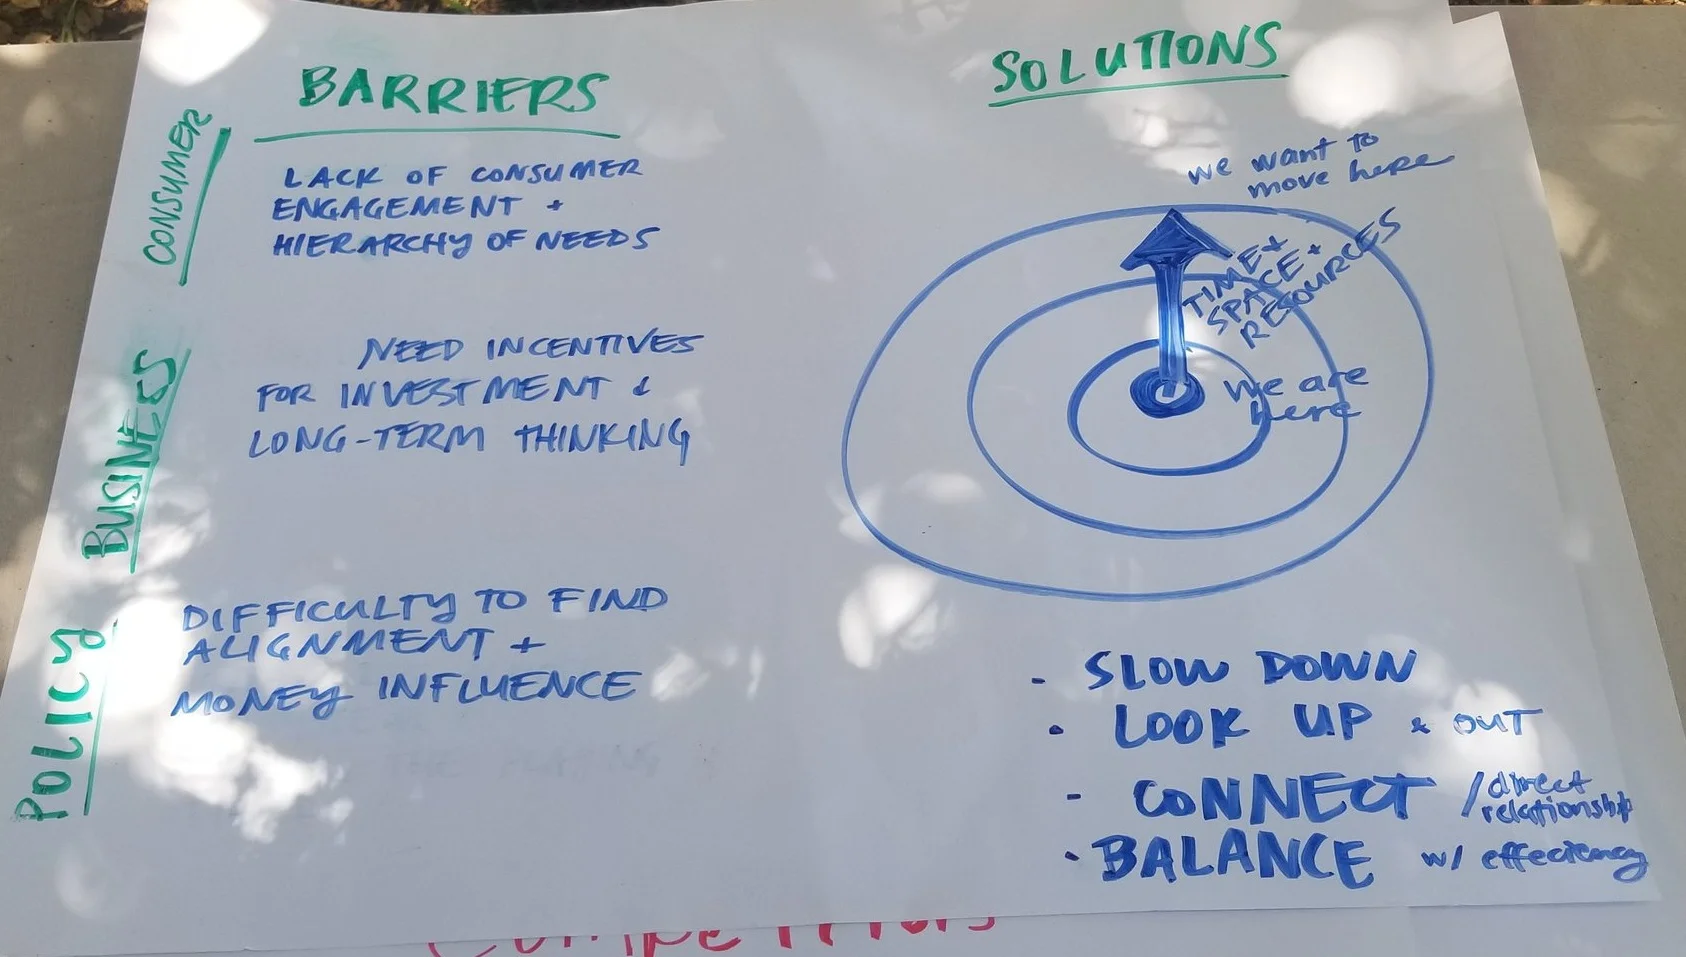 BARRIERS
CONSUMER
LACK OF CONSUMER
ENGAGEMENT +
HIERARCHY OF NEEDS
BUSINESS
NEED INCENTIVES
FOR INVESTMENT &
LONG-TERM THINKING
POLICY
DIFFICULTY TO FIND
ALIGNMENT +
MONEY INFLUENCE
SOLUTIONS
we want to
move here
TIME +
SPACE +
RESOURCES
we are
here
- SLOW DOWN
- LOOK UP & OUT
- CONNECT /direct
relationship
- BALANCE w/ effeciency